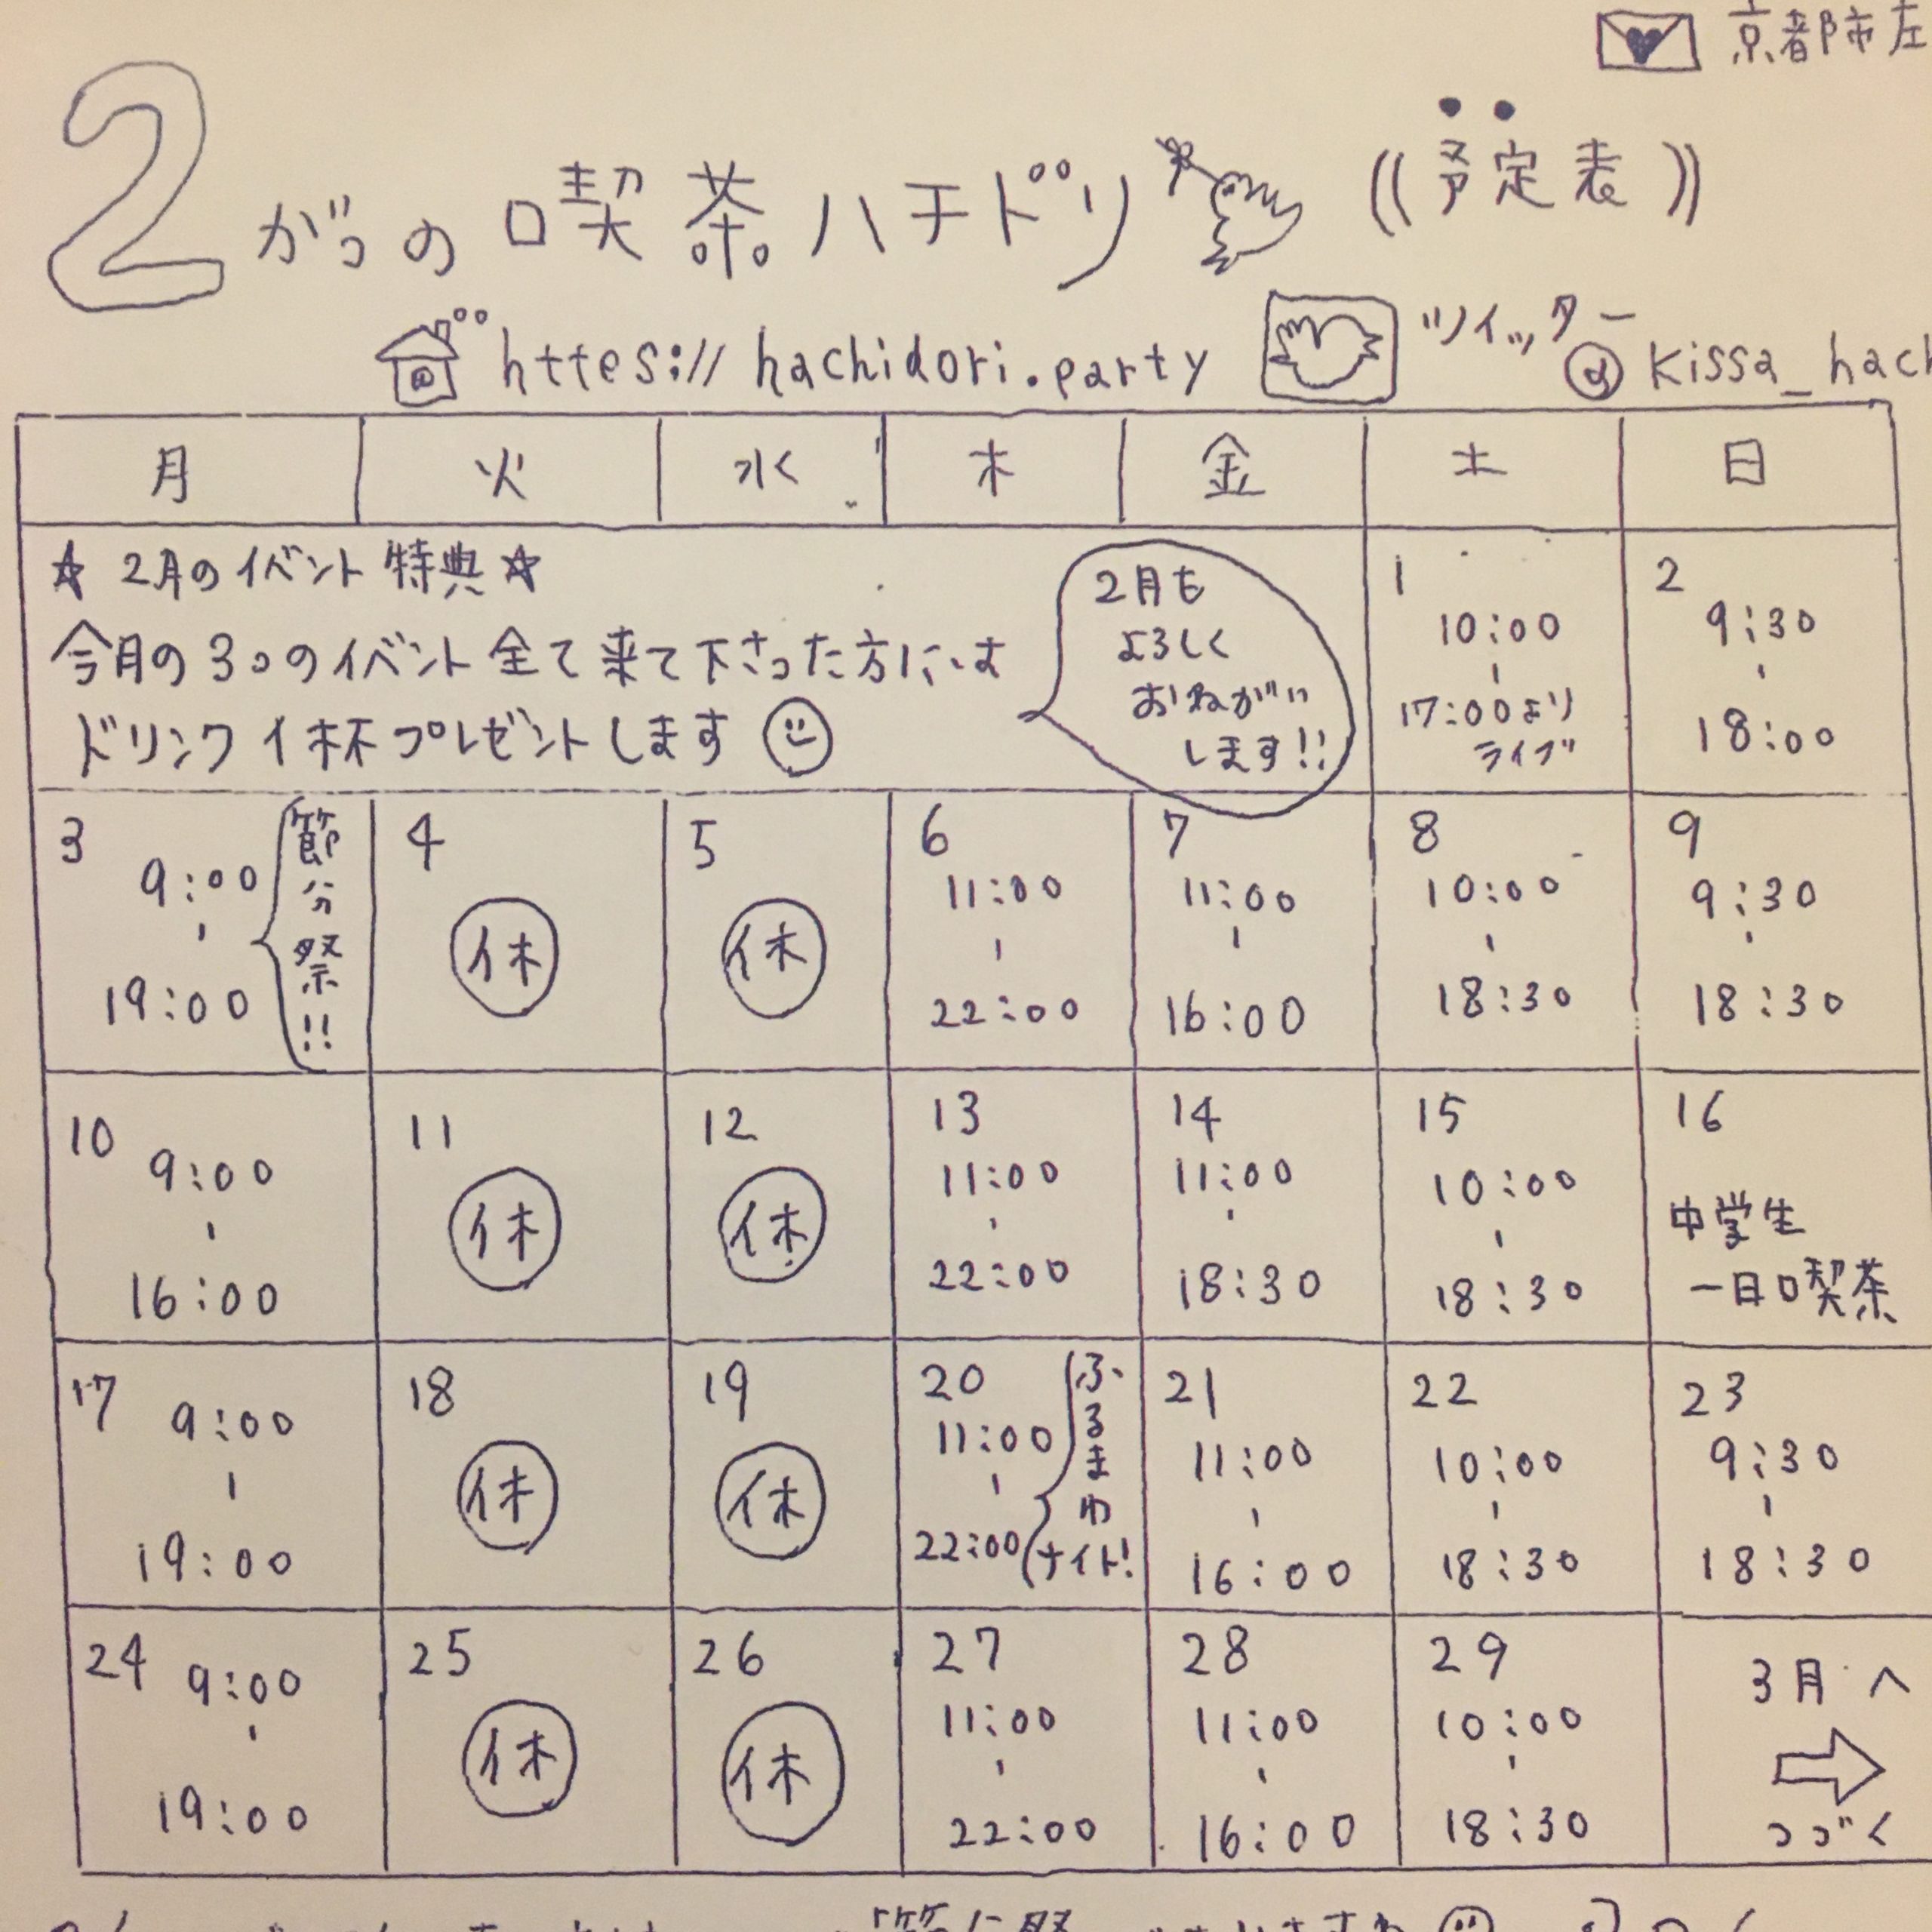 京都市左
2がつの喫茶ハチドリ ((予定表))
https://hachidori.party ツイッター @kissa_hach
月 火 水 木 金 土 日
☆ 2月のイベント特典 ☆
今月の3つのイベント全て来て下さった方には
ドリンク1杯プレゼントします
2月も
よろしく
おねがい
します!!
1
10:00
-
17:00より
ライブ
2
9:30
-
18:00
3
9:00
-
19:00
節分祭!!
4
休
5
休
6
11:00
-
22:00
7
11:00
-
16:00
8
10:00
-
18:30
9
9:30
-
18:30
10
9:00
-
16:00
11
休
12
休
13
11:00
-
22:00
14
11:00
-
18:30
15
10:00
-
18:30
16
中学生
一日喫茶
17
9:00
-
19:00
18
休
19
休
20
11:00
-
22:00
ふるまわ
ナイト!
21
11:00
-
16:00
22
10:00
-
18:30
23
9:30
-
18:30
24
9:00
-
19:00
25
休
26
休
27
11:00
-
22:00
28
11:00
-
16:00
29
10:00
-
18:30
3月へ
つづく